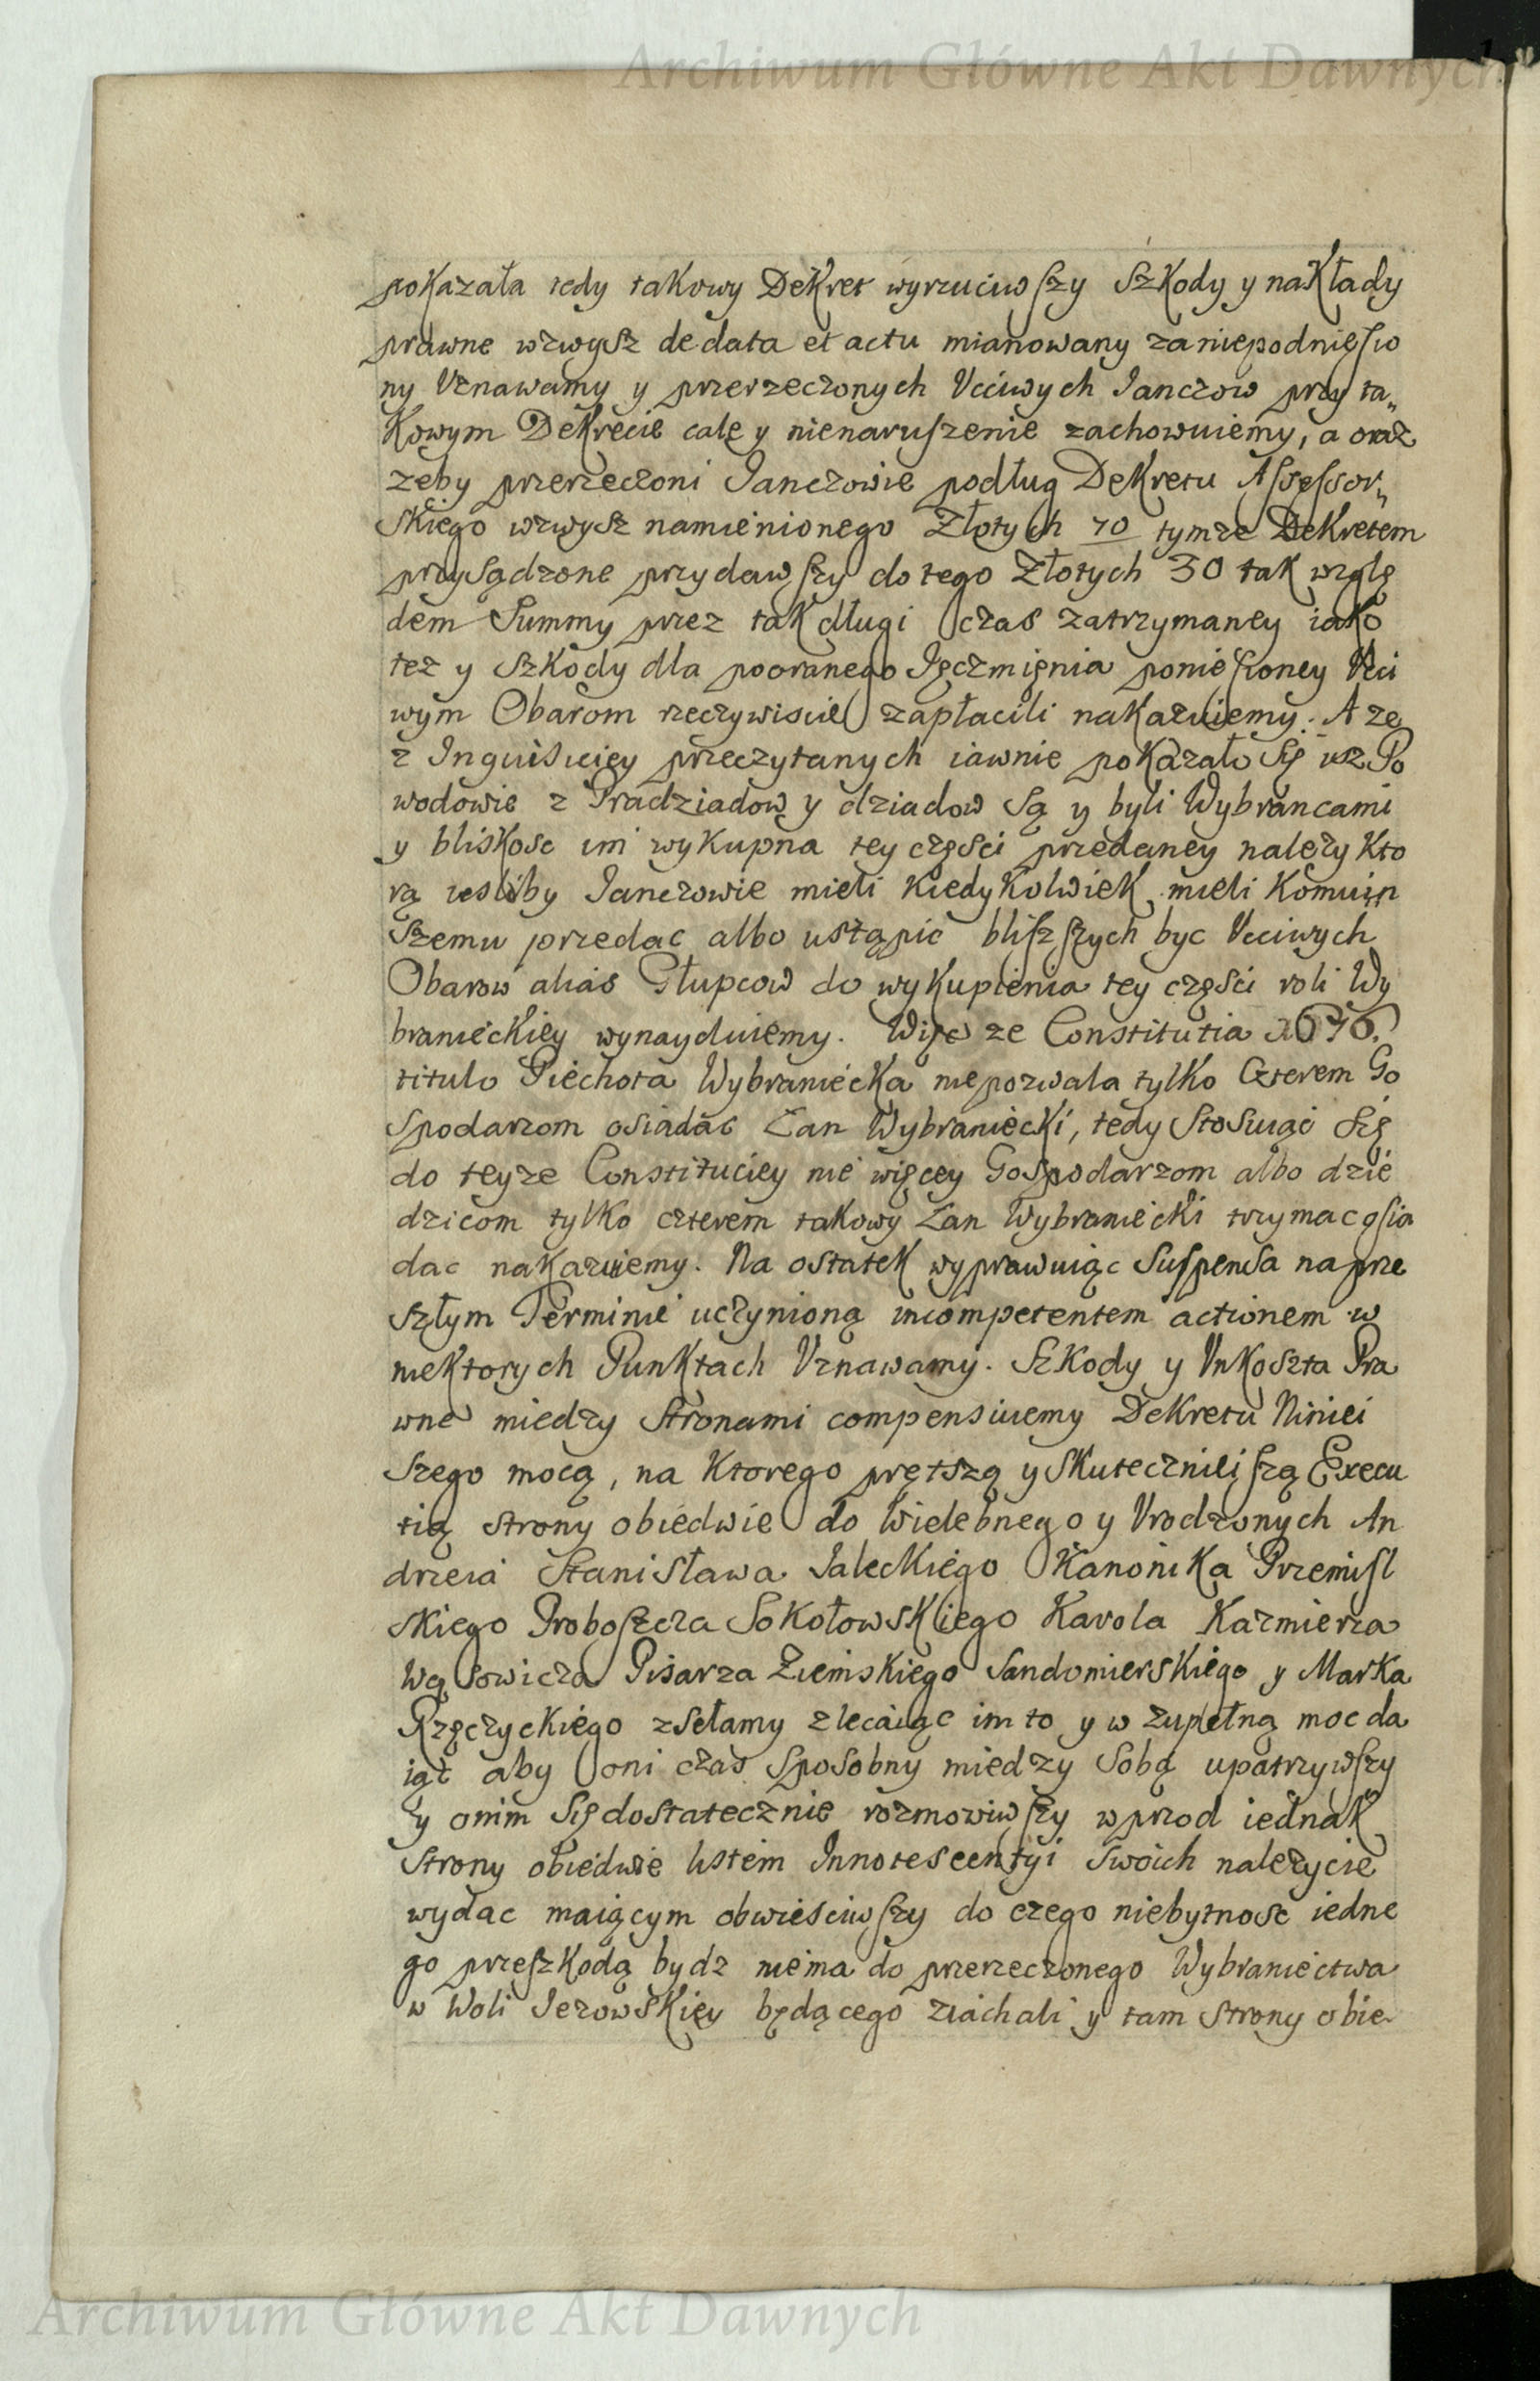 Archiwum Główne Akt Dawnych
pokazała tedy takowy Dekret wyrzuciwszy Szkody y nakłady
prawne wzwysz de data et actu mianowany za niepodniesio
ny Uznawamy y przerzeczonych Uciwych Janczow przy ta„
kowym Dekrecie cale y nienaruszenie zachowuiemy, a oraz
zeby przerzeczoni Janczowie podług Dekretu Assessor„
skiego wzwysz namienionego Złotych 70 tymze Dekretem
przysądzone przydawszy do tego Złotych 30 tak wzglę
dem Summy przez tak długi czas zatrzymaney iako
tez y Szkody dla pooranego Jęczmięnia poniesioney Uci
wym Obarom rzeczywiscie zapłacili nakazuiemy. A ze
z Inquisiciey przeczytanych iawnie pokazało Się isz Po
wodowie z Pradziadow y dziadow są y byli Wybrancami
y bliskosc im wykupna tey częsci przedaney nalezy kto
rą iesliby Janczowie mieli kiedykolwiek mieli komu in
szemu przedac albo ustąpic bliszszych byc Uciwych
Obarow alias Głupcow do wykupienia tey części roli Wy
branieckiey wynayduiemy. Więc ze Constitutia 1676.
titulo Piechota Wybraniecka nie pozwala tylko Czterem Go
spodarzom osiadac Łan Wybraniecki, tedy Stosuiąc Się
do teyze Constituciey nie więcey Gospodarzom albo dzie
dzicom tylko czterem takowy Łan Wybraniecki trzymac osia
dac nakazuiemy. Na ostatek wyprawuiąc Suspensa na prze
szłym Terminie uczynioną incompetentem actionem w
niektorych Punktach Uznawamy. Szkody y Unkoszta Pra
wne miedzy Stronami compensuiemy Dekretu Niniei
szego mocą, na ktorego prętszą y Skutecznieiszą Execu
tią strony obiedwie do Wielebnego y Urodzonych An
drzeia Stanisława Jaleckiego Kanonika Przemisl
skiego Proboszcza Sokołowskiego Karola Kazmierza
Wąsowicza Pisarza Ziemskiego Sandomierskiego y Marka
Rzęczyckiego zsełamy zlecaiąc im to y w zupełną moc da
iąc aby oni czas sposobny miedzy Sobą upatrzywszy
y onim Się dostatecznie rozmowiwszy wprzod iednak
strony obiedwie listem Innotescentyi Swoich nalezycie
wydac maiącym obwiesciwszy do czego niebytnosc iedne
go przeszkodą bydz niema do przerzeczonego Wybraniectwa
w Woli Jezowskiey będącego ziachali y tam Strony obie
Archiwum Główne Akt Dawnych